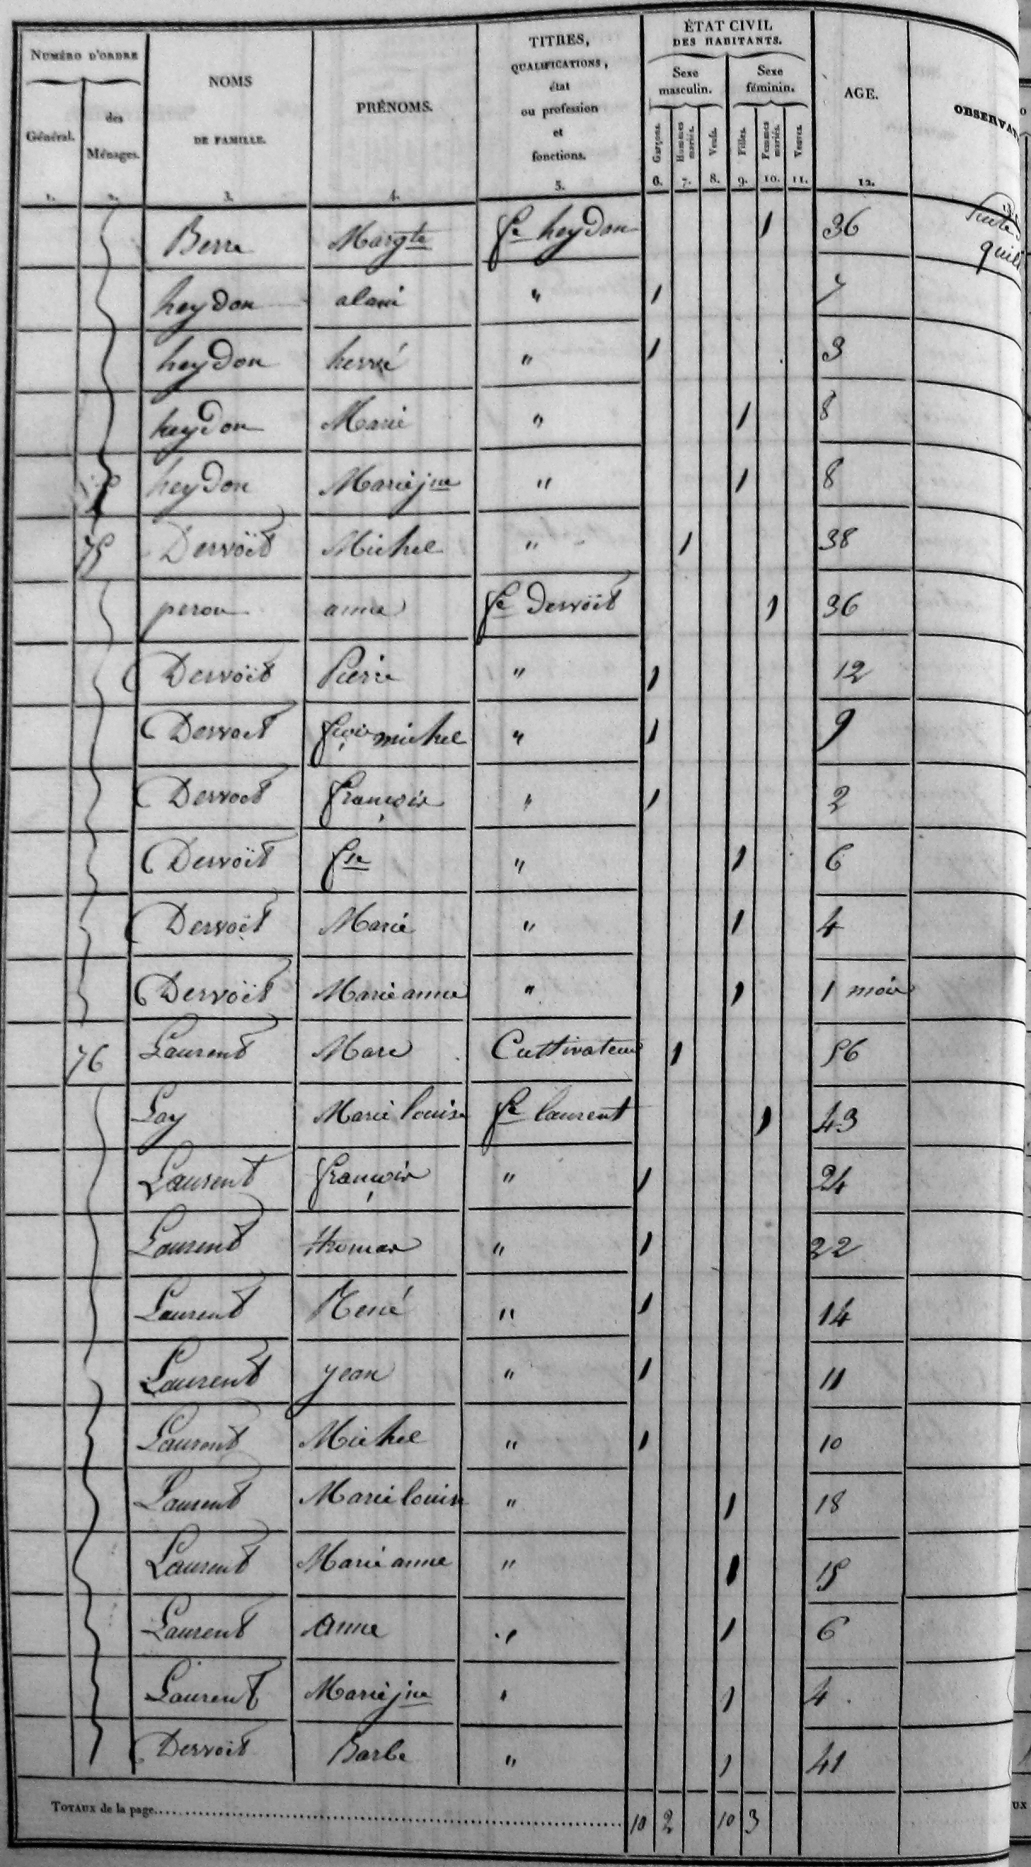 NUMÉRO D'ORDRE NOMS DE FAMILLE. PRÉNOMS. TITRES, QUALIFICATIONS, état ou profession et fonctions. ÉTAT CIVIL DES HABITANTS. AGE. OBSERVAT
Général. des Ménages. Sexe masculin. Sexe féminin.
Garçons. Hommes mariés. Veufs. Filles. Femmes mariées. Veuves.
1. 2. 3. 4. 5. 6. 7. 8. 9. 10. 11. 12.
Berre Margte fe heydon 1 36
heydon alain " 1 7
heydon hervé " 1 3
heydon Marie " 1 8
heydon Marie jne " 1 8
75 Dervoët Michel " 1 38
peron anne fe Dervoët 1 36
Dervoët Pierre " 1 12
Dervoet fçois michel " 1 9
Dervoet françois " 1 2
Dervoët fse " 1 6
Dervoët Marie " 1 4
Dervoët Marie anne " 1 1 mois
76 Laurent Marc Cultivateur 1 56
Lay Marie louise fe laurent 1 43
Laurent françois " 1 24
Laurent thomas " 1 22
Laurent René " 1 14
Laurent jean " 1 11
Laurent Michel " 1 10
Laurent Marie louise " 1 18
Laurent Marie anne " 1 15
Laurent anne " 1 6
Laurent Marie jne " 1 4
Dervoët Barbe " 1 41
TOTAUX de la page 10 2 10 3